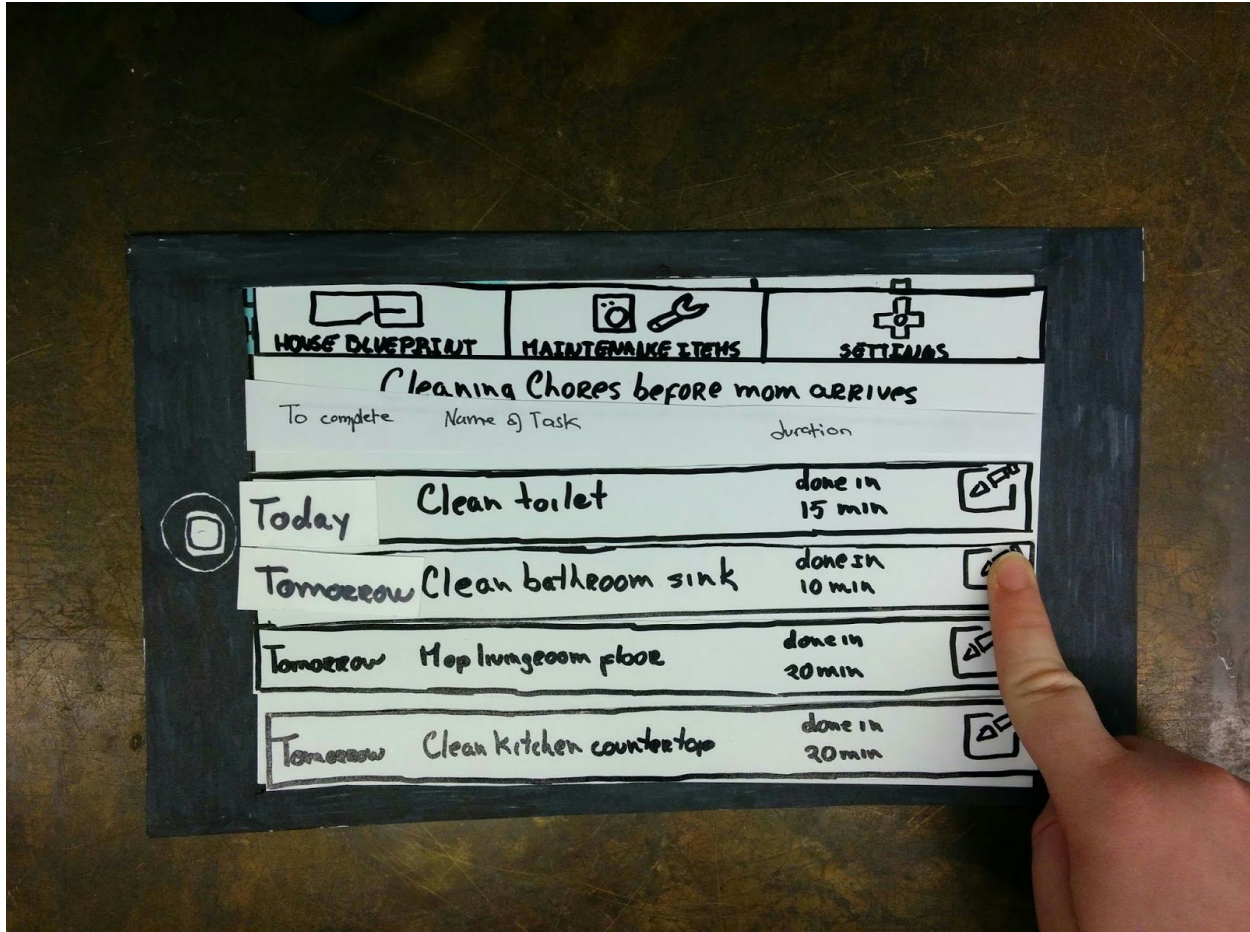 HOUSE BLUEPRINT
MAINTENANCE ITEMS
SETTINGS
Cleaning Chores before mom arrives
To complete
Name of Task
duration
Today
Clean toilet
done in
15 min
Tomorrow
Clean bathroom sink
done in
10 min
Tomorrow
Mop livingroom floor
done in
20 min
Tomorrow
Clean kitchen countertop
done in
20 min